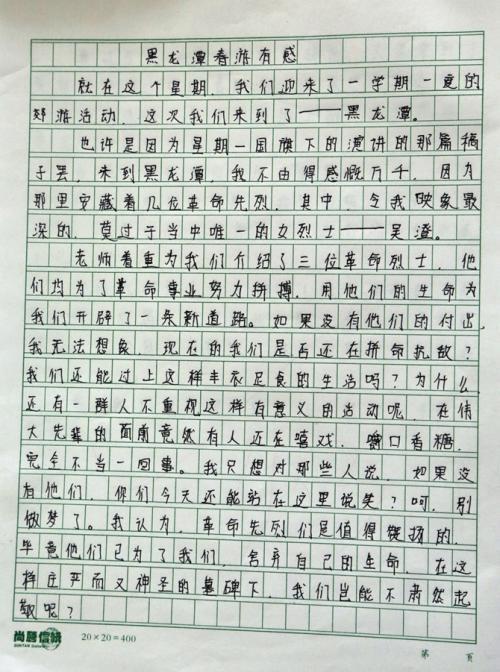 黑龙潭春游有感
就在这个星期，我们迎来了一学期一度的
郊游活动，这次我们来到了——黑龙潭。
也许是因为星期一国旗下的演讲的那篇稿
子罢，来到黑龙潭，我不由得感慨万千，因为
那里安藏着几位革命先烈，其中，令我映象最
深的，莫过于当中唯一的女烈士——吴澄。
老师着重为我们介绍了三位革命烈士，他
们均为了革命事业努力拼搏，用他们的生命为
我们开辟了一条新道路。如果没有他们的付出，
我无法想象，现在的我们是否还在拼命抗敌？
我们还能过上这样丰衣足食的生活吗？为什么
还有一群人不重视这样有意义的活动呢，在伟
大先辈的面前竟然有人还在嘻戏，嚼口香糖，
完全不当一回事。我只想对那些人说，如果没
有他们，你们今天还能够在这里说笑？呵，别
做梦了。我认为，革命先烈们是值得赞扬的，
毕竟他们已为了我们，舍弃自己的生命，在这
样庄严而又神圣的墓碑下，我们岂能不肃然起
敬呢？
尚居信纸 20×20=400
第 页